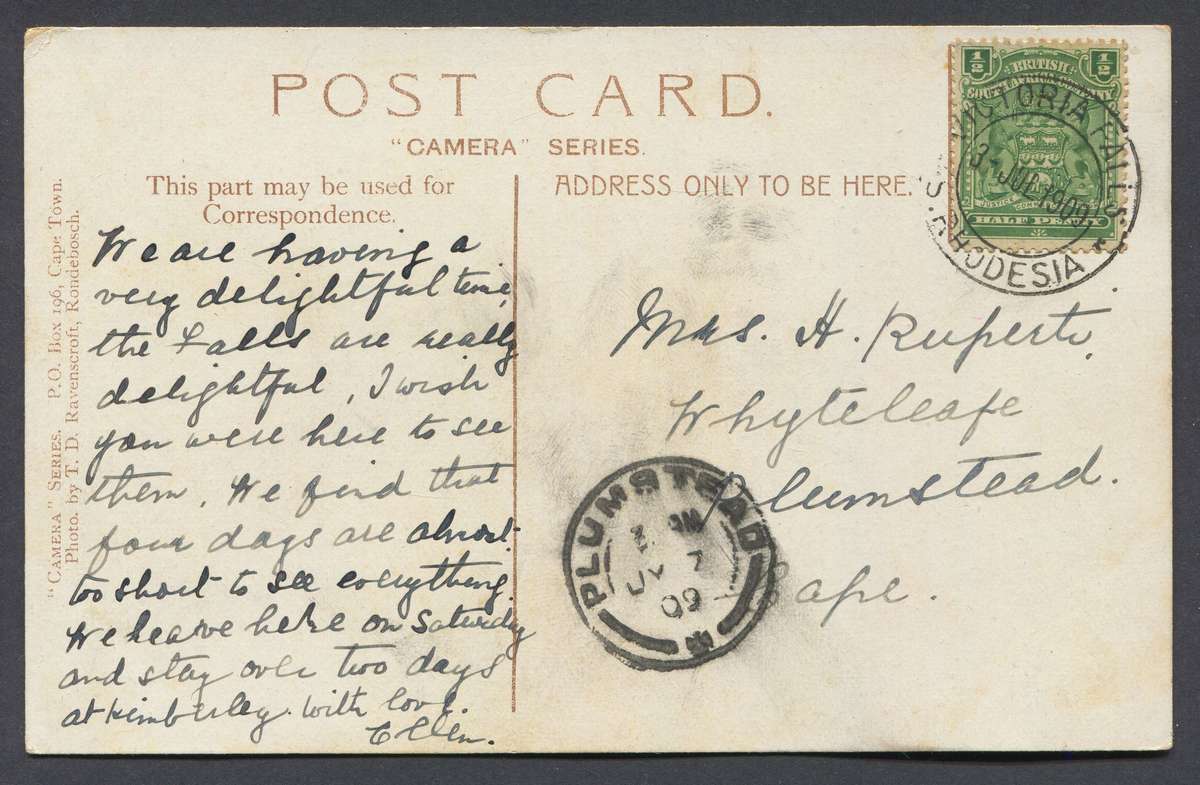 POST CARD.
"CAMERA" SERIES.
This part may be used for
Correspondence.
ADDRESS ONLY TO BE HERE.
We are having a
very delightful time,
the Falls are really
delightful, I wish
you were here to see
them. We find that
four days are almost
too short to see everything.
We leave here on Saturday
and stay over two days
at Kimberley. With love.
Ellen.
Mrs. H. Ruperti,
Whyteleafe
Plumstead.
Cape.
"CAMERA" SERIES. P.O. Box 196, Cape Town.
Photo. by T. D. Ravenscroft, Rondebosch.
½ ½
BRITISH
SOUTH AFRICA COMPANY
JUSTICE COMMERCE
HALF PENNY
VICTORIA FALLS.
JUL 1909
S. RHODESIA
PLUMSTEAD
AM
JY 7
09